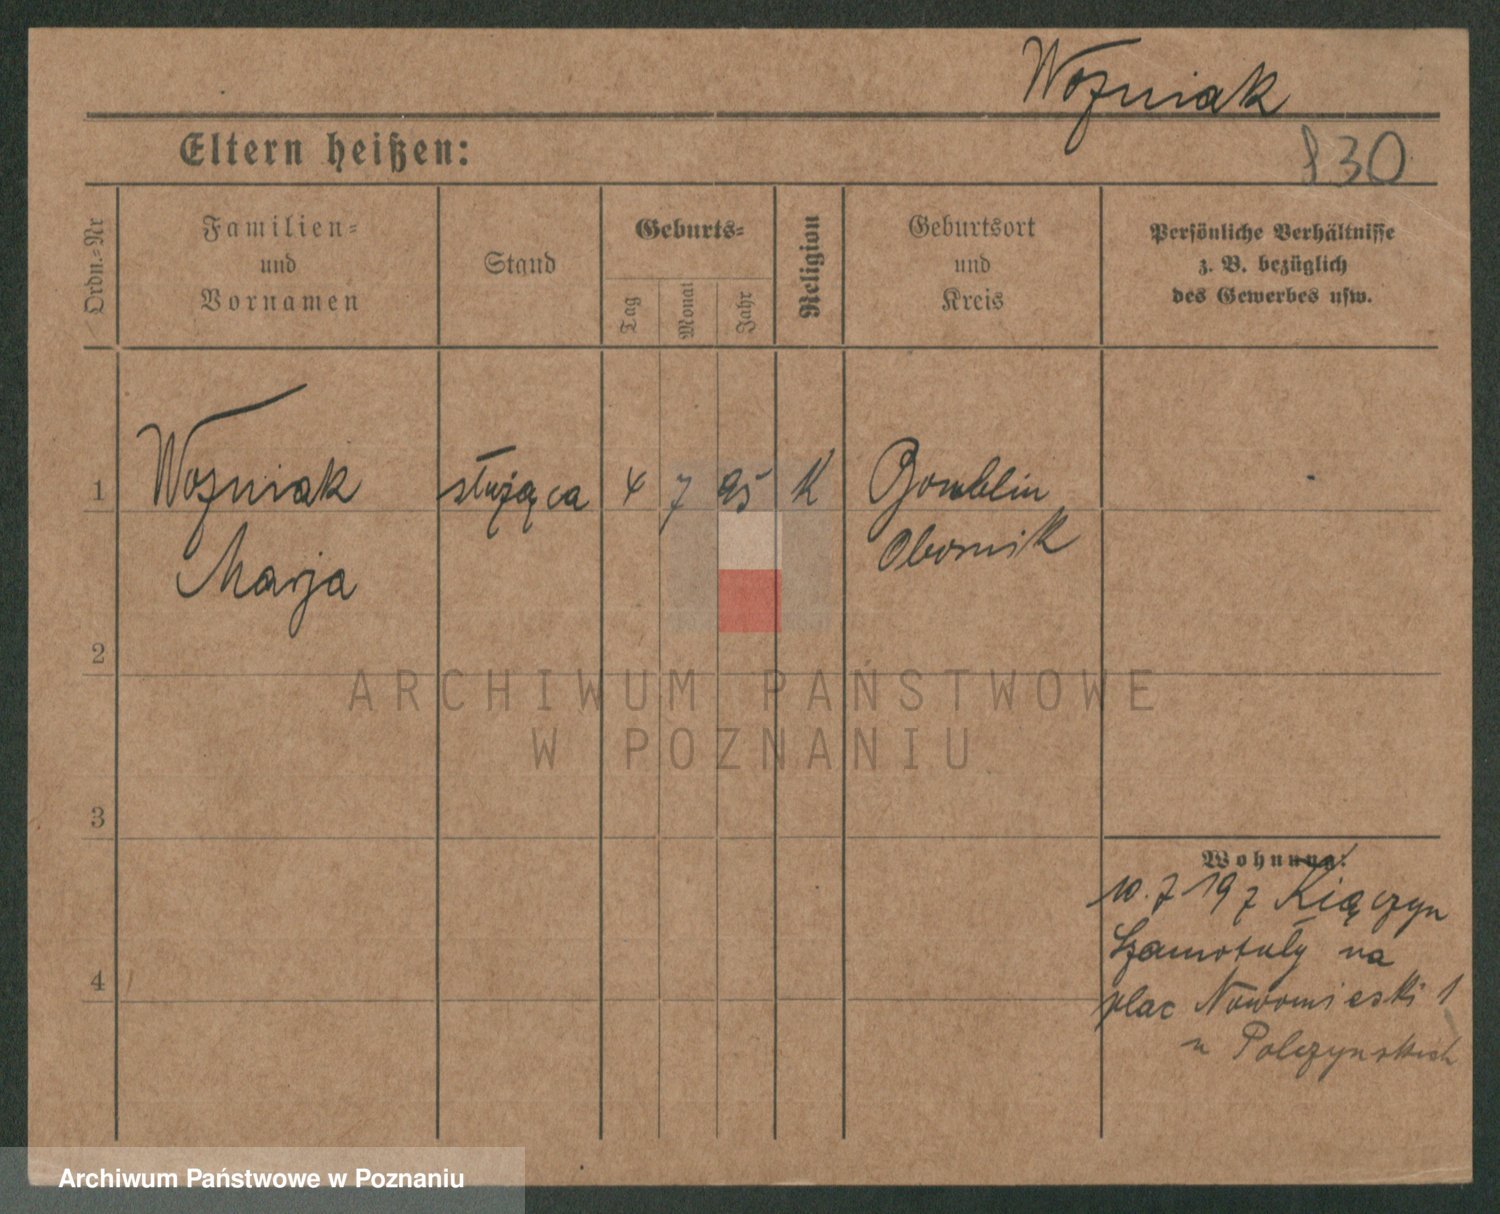 Wozniak
Eltern heißen:
830
Ordn.=Nr
Familien=
und
Vornamen
Stand
Geburts=
Tag
Monat
Jahr
Religion
Geburtsort
und
Kreis
Persönliche Verhältnisse
z. B. bezüglich
des Gewerbes usw.
1
Wozniak
służąca
4
7
95
K
Bomblin
Marja
Obornik
2
ARCHIWUM PAŃSTWOWE
W POZNANIU
3
Wohnung:
10. 7 19 7 Kiączyn
Szamotuły na
4
plac Nowomieski 1
u Polczynskich
Archiwum Państwowe w Poznaniu